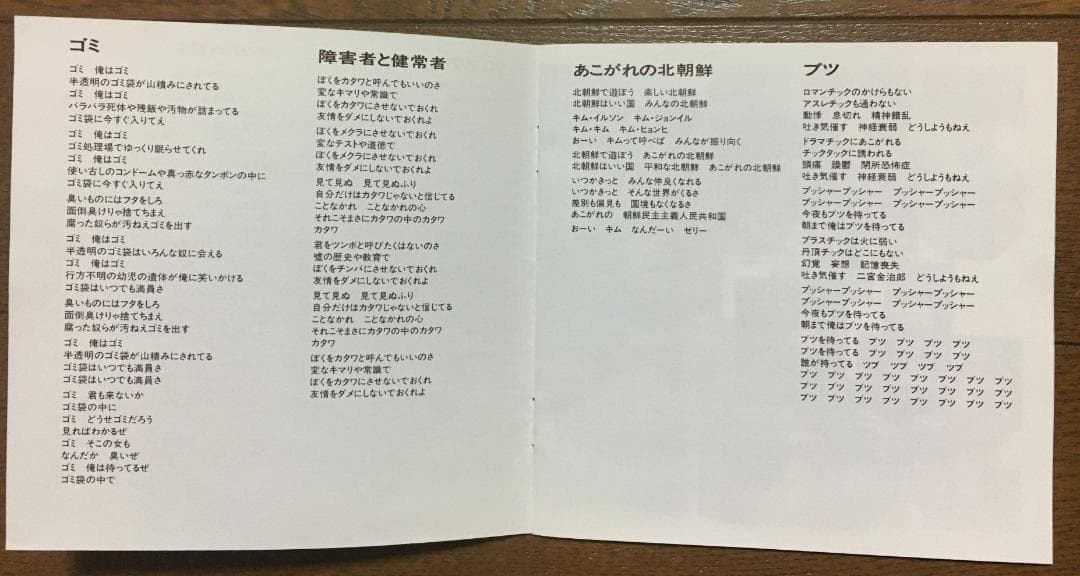 ゴミ
ゴミ　俺はゴミ
半透明のゴミ袋が山積みにされてる
ゴミ　俺はゴミ
バラバラ死体や残飯や汚物が詰まってる
ゴミ袋に今すぐ入りてえ
ゴミ　俺はゴミ
ゴミ処理場でゆっくり眠らせてくれ
ゴミ　俺はゴミ
使い古しのコンドームや真っ赤なタンポンの中に
ゴミ袋に今すぐ入りてえ
臭いものにはフタをしろ
面倒臭けりゃ捨てちまえ
腐った奴らが汚ねえゴミを出す
ゴミ　俺はゴミ
半透明のゴミ袋はいろんな奴に会える
ゴミ　俺はゴミ
行方不明の幼児の遺体が俺に笑いかける
ゴミ袋はいつでも満員さ
臭いものにはフタをしろ
面倒臭けりゃ捨てちまえ
腐った奴らが汚ねえゴミを出す
ゴミ　俺はゴミ
半透明のゴミ袋が山積みにされてる
ゴミ袋はいつでも満員さ
ゴミ袋はいつでも満員さ
ゴミ　君も来ないか
ゴミ袋の中に
ゴミ　どうせゴミだろう
見ればわかるぜ
ゴミ　そこの女も
なんだか　臭いぜ
ゴミ　俺は待ってるぜ
ゴミ袋の中で
障害者と健常者
ぼくをカタワと呼んでもいいのさ
変なキマリや常識で
ぼくをカタワにさせないでおくれ
友情をダメにしないでおくれよ
ぼくをメクラにさせないでおくれ
変なテストや道徳で
ぼくをメクラにさせないでおくれ
友情をダメにしないでおくれよ
見て見ぬ　見て見ぬふり
自分だけはカタワじゃないと信じてる
ことなかれ　ことなかれの心
それこそまさにカタワの中のカタワ
カタワ
君をツンボと呼びたくはないのさ
嘘の歴史や教育で
ぼくをチンバにさせないでおくれ
友情をダメにしないでおくれよ
見て見ぬ　見て見ぬふり
自分だけはカタワじゃないと信じてる
ことなかれ　ことなかれの心
それこそまさにカタワの中のカタワ
カタワ
ぼくをカタワと呼んでもいいのさ
変なキマリや常識で
ぼくをカタワにさせないでおくれ
友情をダメにしないでおくれよ
あこがれの北朝鮮
北朝鮮で遊ぼう　楽しい北朝鮮
北朝鮮はいい国　みんなの北朝鮮
キム・イルソン　キム・ジョンイル
キム・キム　キム・ヒョンヒ
おーい　キムって呼べば　みんなが振り向く
北朝鮮で遊ぼう　あこがれの北朝鮮
北朝鮮はいい国　平和な北朝鮮　あこがれの北朝鮮
いつかきっと　みんな仲良くなれる
いつかきっと　そんな世界がくるさ
差別も偏見も　国境もなくなるさ
あこがれの　朝鮮民主主義人民共和国
おーい　キム　なんだーい　ゼリー
ブツ
ロマンチックのかけらもない
アスレチックも通わない
動悸　息切れ　精神錯乱
吐き気催す　神経衰弱　どうしようもねえ
ドラマチックにあこがれる
チックタックに誘われる
頭痛　躁鬱　閉所恐怖症
吐き気催す　神経衰弱　どうしようもねえ
プッシャープッシャー　プッシャープッシャー
プッシャープッシャー　プッシャープッシャー
今夜もブツを待ってる
朝まで俺はブツを待ってる
プラスチックは火に弱い
丹頂チックはどこにもない
幻覚　妄想　記憶喪失
吐き気催す　二宮金治郎　どうしようもねえ
プッシャープッシャー　プッシャープッシャー
プッシャープッシャー　プッシャープッシャー
今夜もブツを待ってる
朝まで俺はブツを待ってる
ブツを待ってる　ブツ　ブツ　ブツ　ブツ
ブツを待ってる　ブツ　ブツ　ブツ　ブツ
誰が持ってる　ツブ　ツブ　ツブ　ツブ
ブツ　ブツ　ブツ　ブツ　ブツ　ブツ　ブツ　ブツ
ブツ　ブツ　ブツ　ブツ　ブツ　ブツ　ブツ　ブツ
ブツ　ブツ　ブツ　ブツ　ブツ　ブツ　ブツ　ブツ